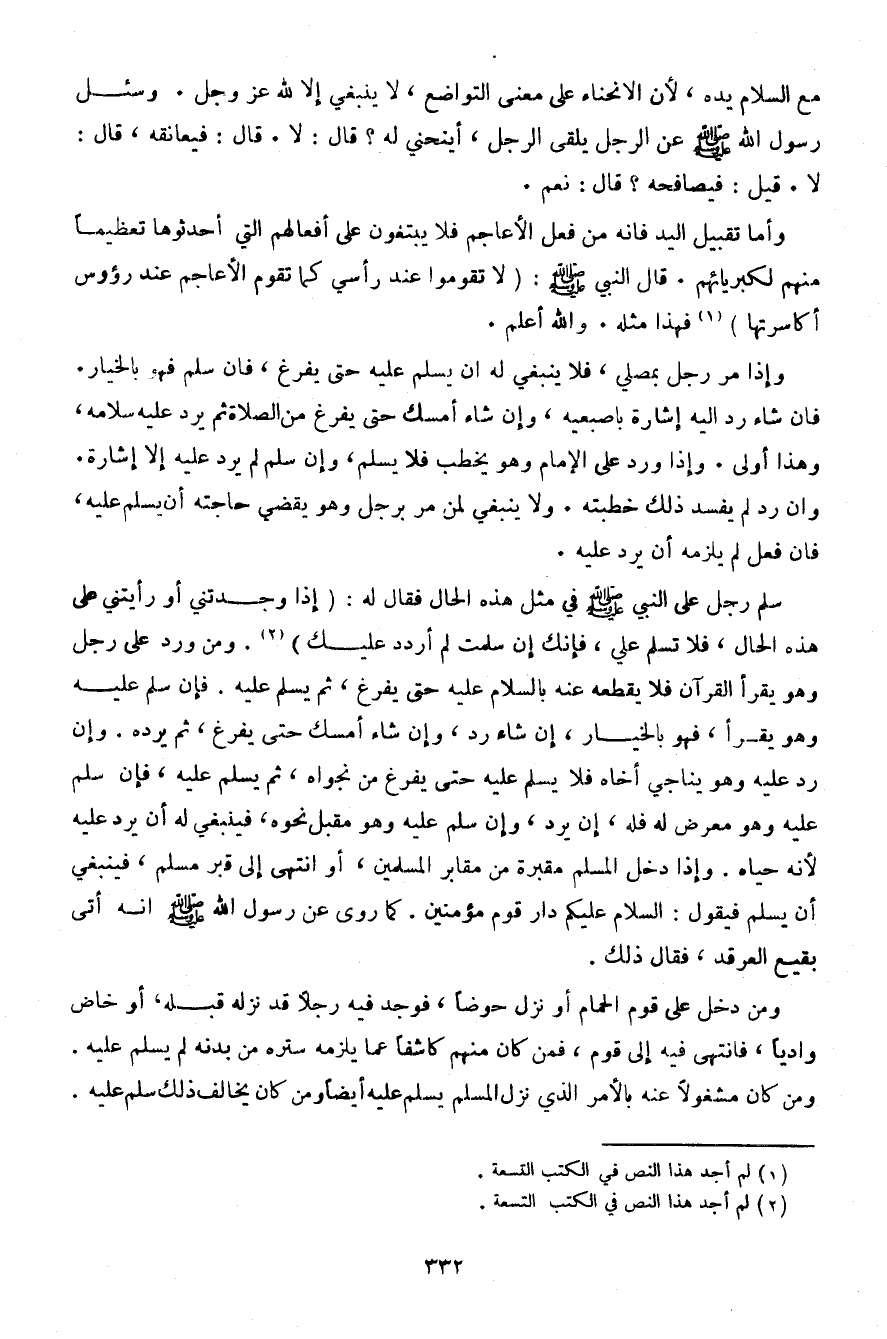 مع السلام يده ، لأن الانحناء على معنى التواضع ، لا ينبغي إلا لله عز وجل . وسئل
رسول الله ﷺ عن الرجل يلقى الرجل ، أينحني له ؟ قال : لا . قال : فيعانقه ، قال :
لا . قيل : فيصافحه ؟ قال : نعم .
وأما تقبيل اليد فانه من فعل الأعاجم فلا يبتغون على أفعالهم التي أحدثوها تعظيماً
منهم لكبريائهم . قال النبي ﷺ : ( لا تقوموا عند رأسي كما تقوم الأعاجم عند رؤوس
أكاسرتها ) (١) فهذا مثله . والله أعلم .
وإذا مر رجل بمصلي ، فلا ينبغي له ان يسلم عليه حتى يفرغ ، فان سلم فهو بالخيار .
فان شاء رد اليه إشارة باصبعيه ، وإن شاء أمسك حتى يفرغ من الصلاة ثم يرد عليه سلامه ،
وهذا أولى . وإذا ورد على الإمام وهو يخطب فلا يسلم ، وإن سلم لم يرد عليه إلا إشارة .
وان رد لم يفسد ذلك خطبته . ولا ينبغي لمن مر برجل وهو يقضي حاجته أن يسلم عليه ،
فان فعل لم يلزمه أن يرد عليه .
سلم رجل على النبي ﷺ في مثل هذه الحال فقال له : ( إذا وجدتني أو رأيتني على
هذه الحال ، فلا تسلم علي ، فإنك إن سلمت لم أردد عليك ) (٢) . ومن ورد على رجل
وهو يقرأ القرآن فلا يقطعه عنه بالسلام عليه حتى يفرغ ، ثم يسلم عليه . فإن سلم عليه
وهو يقرأ ، فهو بالخيار ، إن شاء رد ، وإن شاء أمسك حتى يفرغ ، ثم يرده . وإن
رد عليه وهو يناجي أخاه فلا يسلم عليه حتى يفرغ من نجواه ، ثم يسلم عليه ، فإن سلم
عليه وهو معرض له فله ، إن يرد ، وإن سلم عليه وهو مقبل نحوه ، فينبغي له أن يرد عليه
لأنه حياه . وإذا دخل المسلم مقبرة من مقابر المسلمين ، أو انتهى إلى قبر مسلم ، فينبغي
أن يسلم فيقول : السلام عليكم دار قوم مؤمنين . كما روى عن رسول الله ﷺ انه أتى
بقيع العرقد ، فقال ذلك .
ومن دخل على قوم الحمام أو نزل حوضاً ، فوجد فيه رجلاً قد نزله قبله ، أو خاض
وادياً ، فانتهى فيه إلى قوم ، فمن كان منهم كاشفاً عما يلزمه ستره من بدنه لم يسلم عليه .
ومن كان مشغولاً عنه بالأمر الذي نزل المسلم يسلم عليه أيضاً ومن كان يخالف ذلك سلم عليه .
(١) لم أجد هذا النص في الكتب التسعة .
(٢) لم أجد هذا النص في الكتب التسعة .
٣٣٢